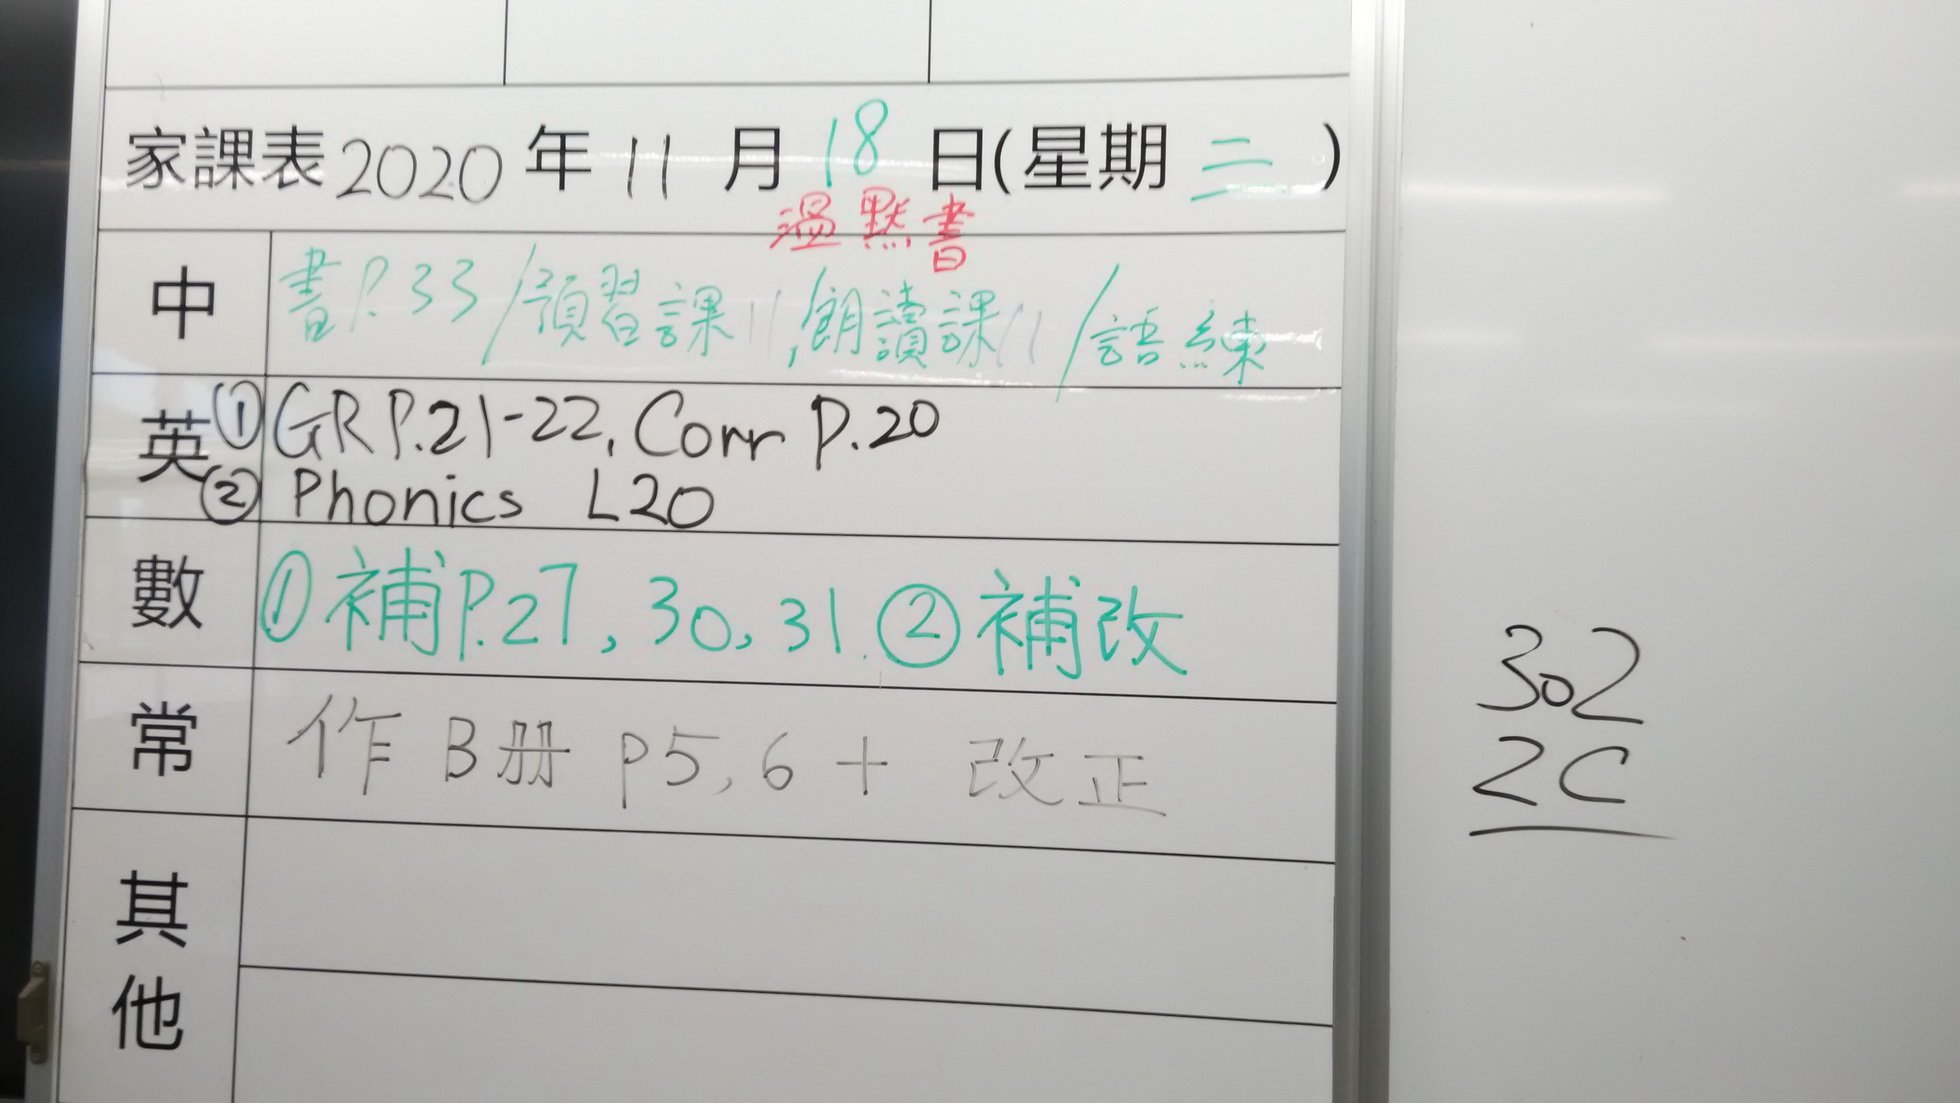 家課表2020年11月18日(星期三)
溫默書
中 書P.33/預習課11,朗讀課11/語練
英 ①GR P.21-22, Corr P.20
② Phonics L20
數 ①補P.27, 30, 31. ②補改
常 作B冊 P5, 6 + 改正
其他
302
2C